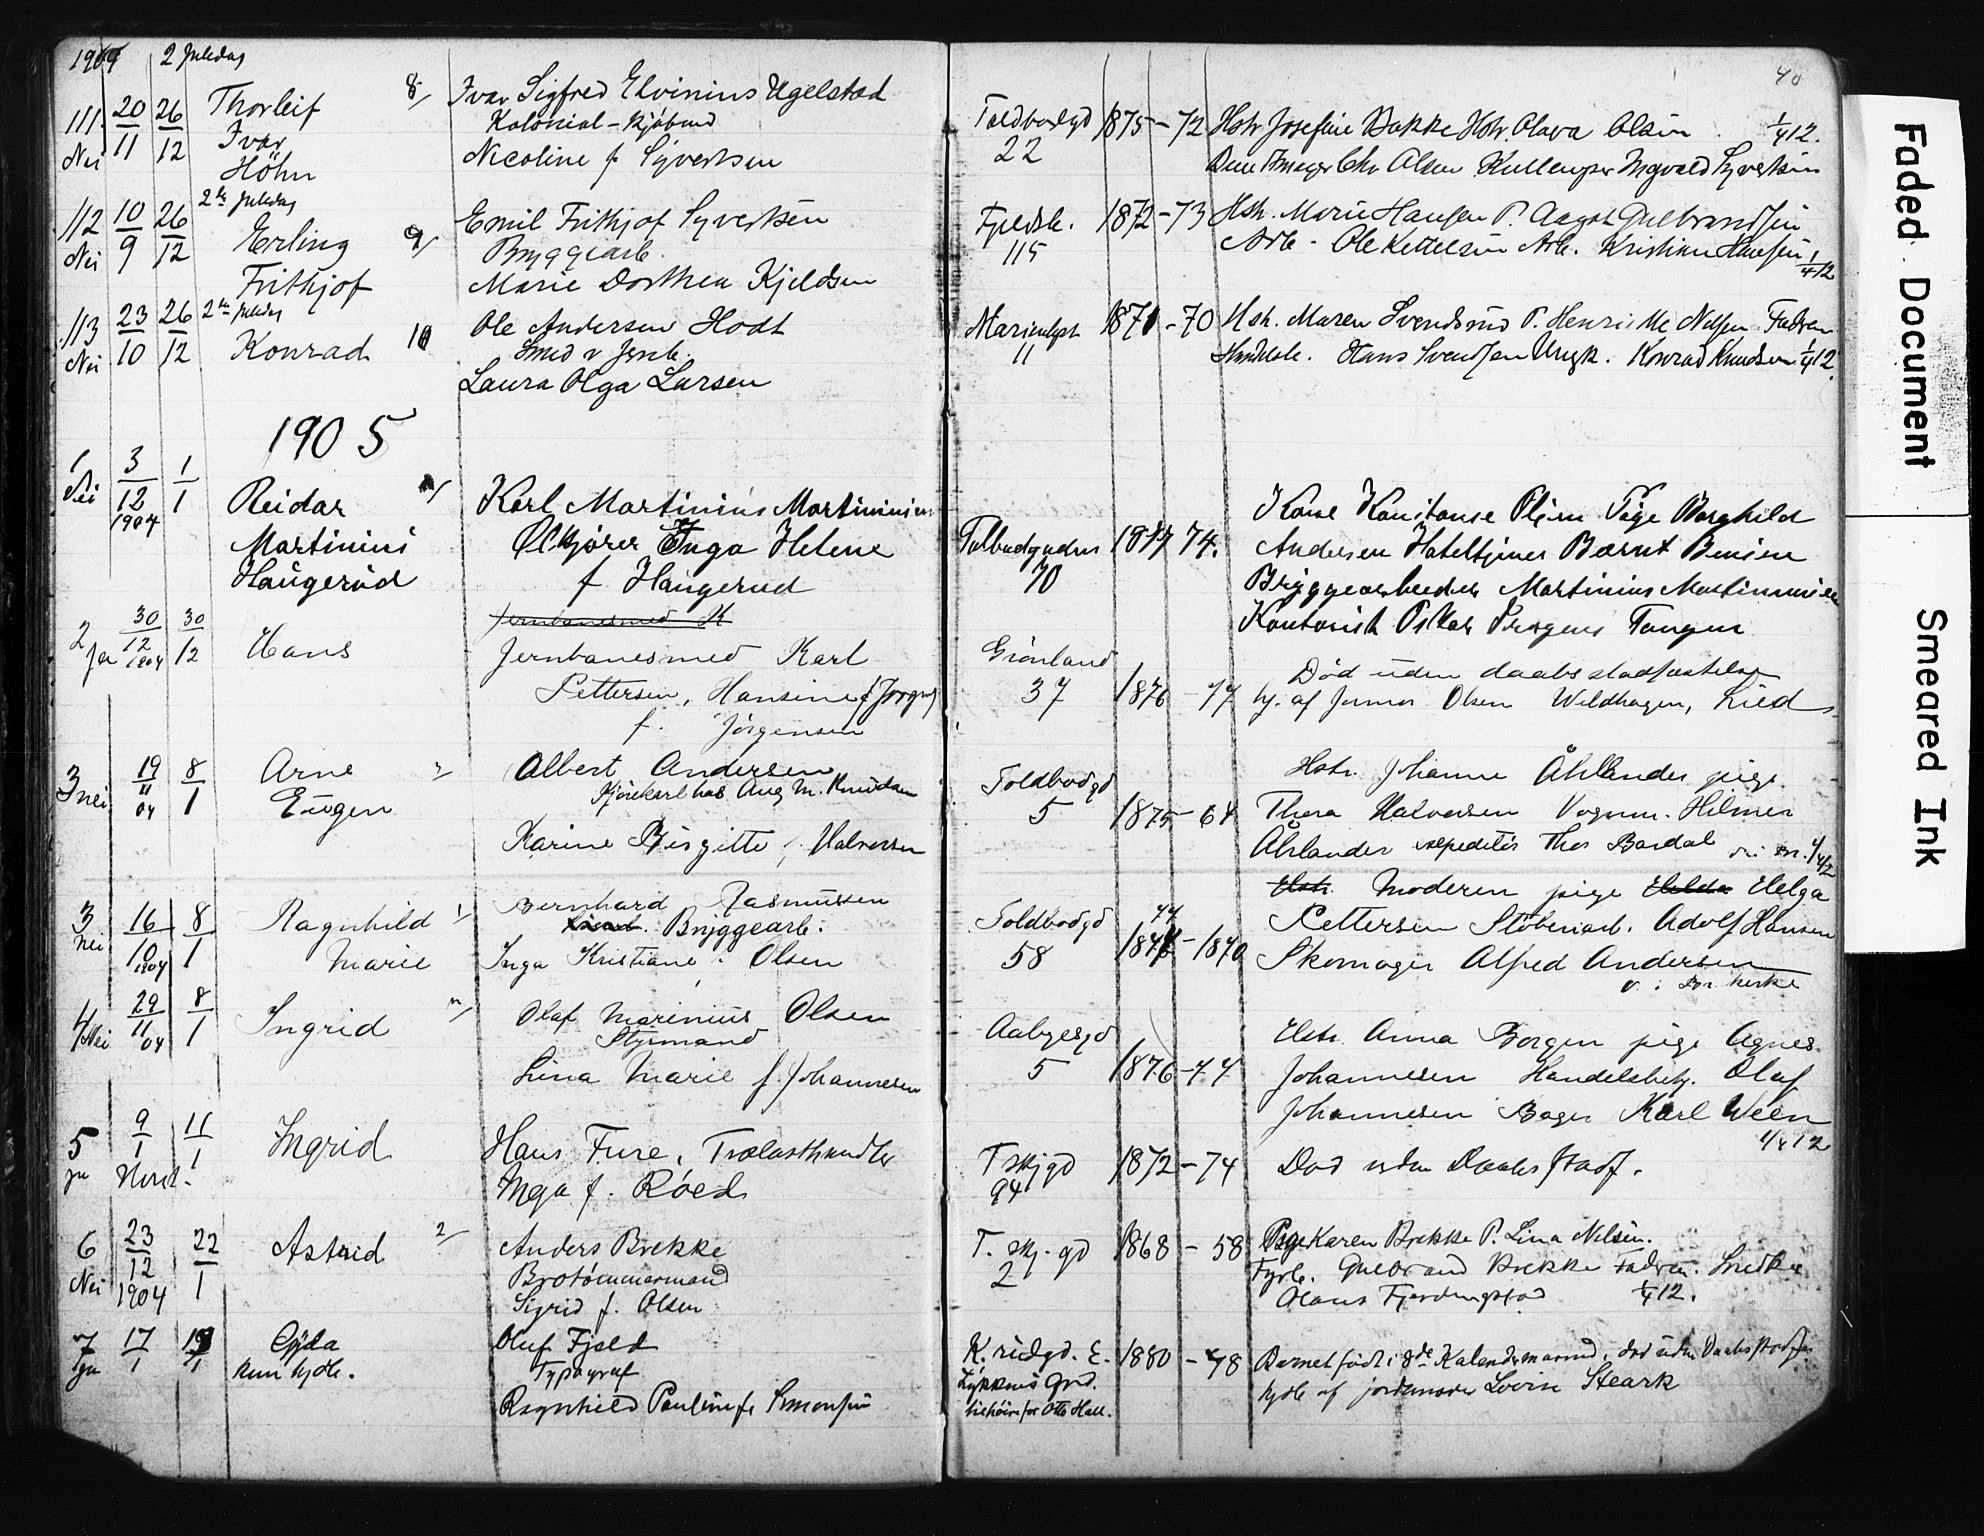 1904 2 Juledag 40
111. 20/11 26/12 Thorleif 8/ Ivar Sigfred Elvinius Ugelstad Toldbodgd 1875-72 Hstr Josefine Bakke Hstr. Olava Olsen 1/4 12.
Nei Ivar Kolonial-kjøbmd 22
Høhn Nicoline f. Syvertsen Chr Olsen Ingvald Syvertsen
112 10/9 26/12 2den Juledag Erling 9/ Emil Frithjof Syvertsen Fjeldsk. 1872-73 Hstr. Marie Hansen P. Aagot Gulbrandsen
Nei Frithjof Bryggearb. 115 Arb. Ole Kettelsen Arb. Kristian Hansen 1/4 12
Marie Dorthea Kjeldsen
113 23/10 26/12 2den Juledag Konrad 10 Ole Andersen Hodt Marienlyst 1871-70 Hstr. Maren Svendsrud P. Henriette Nilsen Faderen
Nei Smed v Jernb. 11 Hans Svendsen Konrad Knudsen 1/4 12.
Laura Olga Larsen
1905
1 3/12 1904 1/1 Reidar Karl Martinius Martiniusen Kone Konstanse Olsen Pige Borghild
Nei Martinius Inga Helene Tolbudgaden 74. Andersen Bernt Bensen
Haugerud f Haugerud 70 Bryggearbeider Martinius Martiniusen
Kontorist Oskar Tangen
2 30/12 1904 30/12 Hans Jernbanesmed K
Ja Jernbanesmed Karl Grønland Død uden daabsstadfæstelse
Pettersen, Hansine f. Jørgens 37 1876-77 hj. af Olsen Weldhagen, Lied
f. Jørgensen
3 19/11 04 8/1 Arne Albert Andersen Toldbodgd Hstr. Johanne Åhlander pige
nei Eugen Kjørekarl hos Aug M. Knudsen 5 1875-64 Thora Halvorsen Vognm. Hilmer
Karine Birgitte f. Halvorsen Åhlander expeditør Thor Bardal 1/4 12
3 16/10 1904 8/1 Ragnhild 1 Bernhard Rasmussen Toldbodgd Hstr. Moderen pige Hilda Helga
nei Marie Bryggearb. 58 1870 Pettersen Støberiarb. Adolf Hansen
Inga Kristiane f. Olsen Skomager Alfred Andersen
v. i Br. kirke
4 29/11 04 8/1 Ingrid Olaf Marinius Olsen Aabyesgd Hstr. Anna Borgen pige Agnes
Nei Styrmand 5 1876-77 Johannesen Handelsbetj. Olaf
Lina Marie f. Johannesen Johannesen Bager Karl Ween
1/4 12
5 9/1 11/1 Ingrid Hans Fure, Trælasthandler T skjgd 1872-74 Død uden Daabsstadf.
ja Inga f. Røed 94
6 23/12 1904 22/1 Astrid 2/ Anders Brekke T. skj. gd 1868-58 Pige Karen Brekke P. Lina Nilsen.
Nei Brotømmermand 2 Fyrb. Gulbrand Brekke Faderen. Snedker
Sigrid f. Olsen Olaus Fjerdingstad 1/4 12.
7 17/1 19/1 Gyda Oluf Fjeld K. rudgd. E. 1880-78 Barnet født i 8de Kalendermaaned, død uden Daabsstadf.
ja kun hjdb. Typograf Lykkens Grd. hjdb af jordmoder Lovise Steark
Ragnhild Pauline f. Simonsen tilhøire for Otto Hall.
Faded Document
Smeared Ink